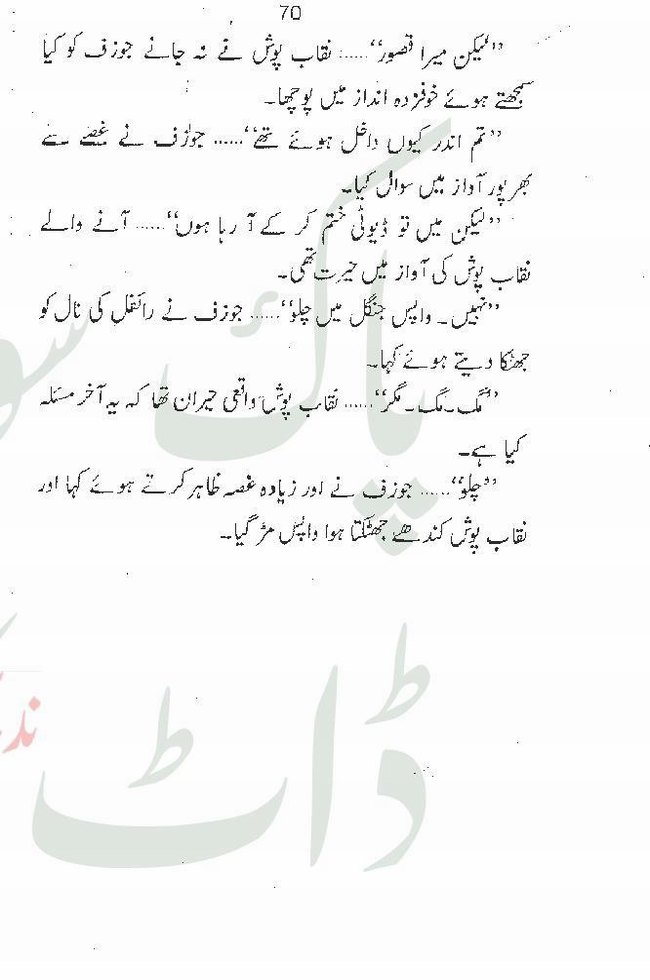 70
”لیکن میرا قصور“..... نقاب پوش نے نہ جانے جوزف کو کیا
سمجھتے ہوئے خوفزدہ انداز میں پوچھا۔
”تم اندر کیوں داخل ہوئے تھے“...... جوزف نے غصے سے
بھرپور آواز میں سوال کیا۔
”لیکن میں تو ڈیوٹی ختم کر کے آ رہا ہوں“..... آنے والے
نقاب پوش کی آواز میں حیرت تھی۔
”نہیں۔ واپس جنگل میں چلو“...... جوزف نے رائفل کی نال کو
جھٹکا دیتے ہوئے کہا۔
”مگ۔ مگ۔ مگر“..... نقاب پوش واقعی حیران تھا کہ یہ آخر مسئلہ
کیا ہے۔
”چلو“...... جوزف نے اور زیادہ غصہ ظاہر کرتے ہوئے کہا اور
نقاب پوش کندھے جھٹکتا ہوا واپس مڑ گیا۔
پاک
ڈاٹ